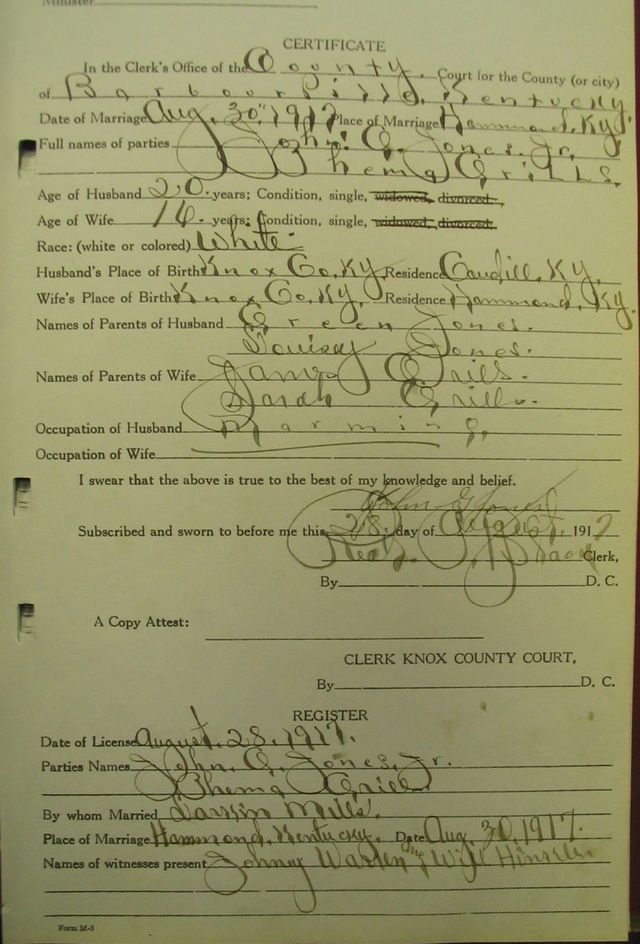 Minister
CERTIFICATE
In the Clerk's Office of the County, Court for the County (or city)
of Barbourville, Kentucky.
Date of Marriage Aug. 30, 1917 Place of Marriage Hammond, Ky.
Full names of parties John. G. Jones, Jr.
Rhema Grills.
Age of Husband 20. years; Condition, single, widowed, divorced.
Age of Wife 16. years; Condition, single, widowed, divorced.
Race: (white or colored) White.
Husband's Place of Birth Knox Co, Ky, Residence Caudill, Ky,
Wife's Place of Birth Knox Co, Ky, Residence Hammond, Ky,
Names of Parents of Husband Green Jones.
Louisey Jones.
Names of Parents of Wife James Grills.
Sarah Grills.
Occupation of Husband Farming,
Occupation of Wife
I swear that the above is true to the best of my knowledge and belief.
John G Jones
Subscribed and sworn to before me this 28, day of August, 1917
Clerk,
By D. C.
A Copy Attest:
CLERK KNOX COUNTY COURT,
By D. C.
REGISTER
Date of License August, 28, 1917.
Parties Names John. G. Jones, Jr.
Rhema Grill
By whom Married Mills.
Place of Marriage Hammond, Kentucky. Date Aug. 30, 1917.
Names of witnesses present Johny Warren, & Will Hinkle.
Form M-3